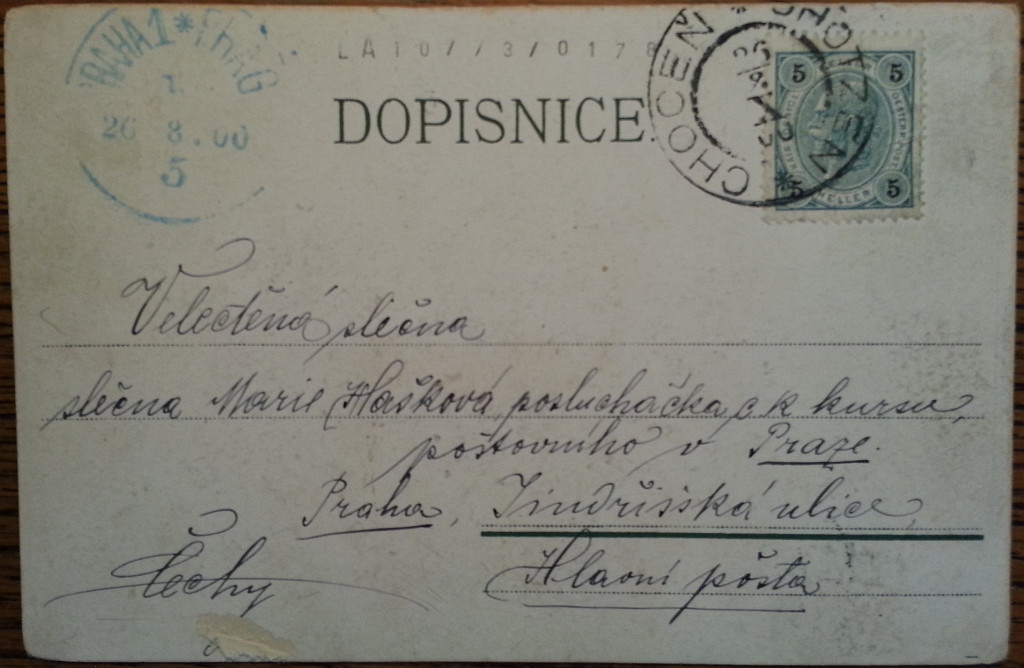 PRAHA 1 * PRAG
1
26 8.00
5
LA10//3/0178
DOPISNICE.
CHOCEŇ * CHOTZEN
5 5
5 5
HELLER
Velectěná slečna
slečna Marie Hašková, posluchačka c k kursu,
poštovního v Praze.
Praha, Jindřišská ulice,
Hlavní pošta
Čechy